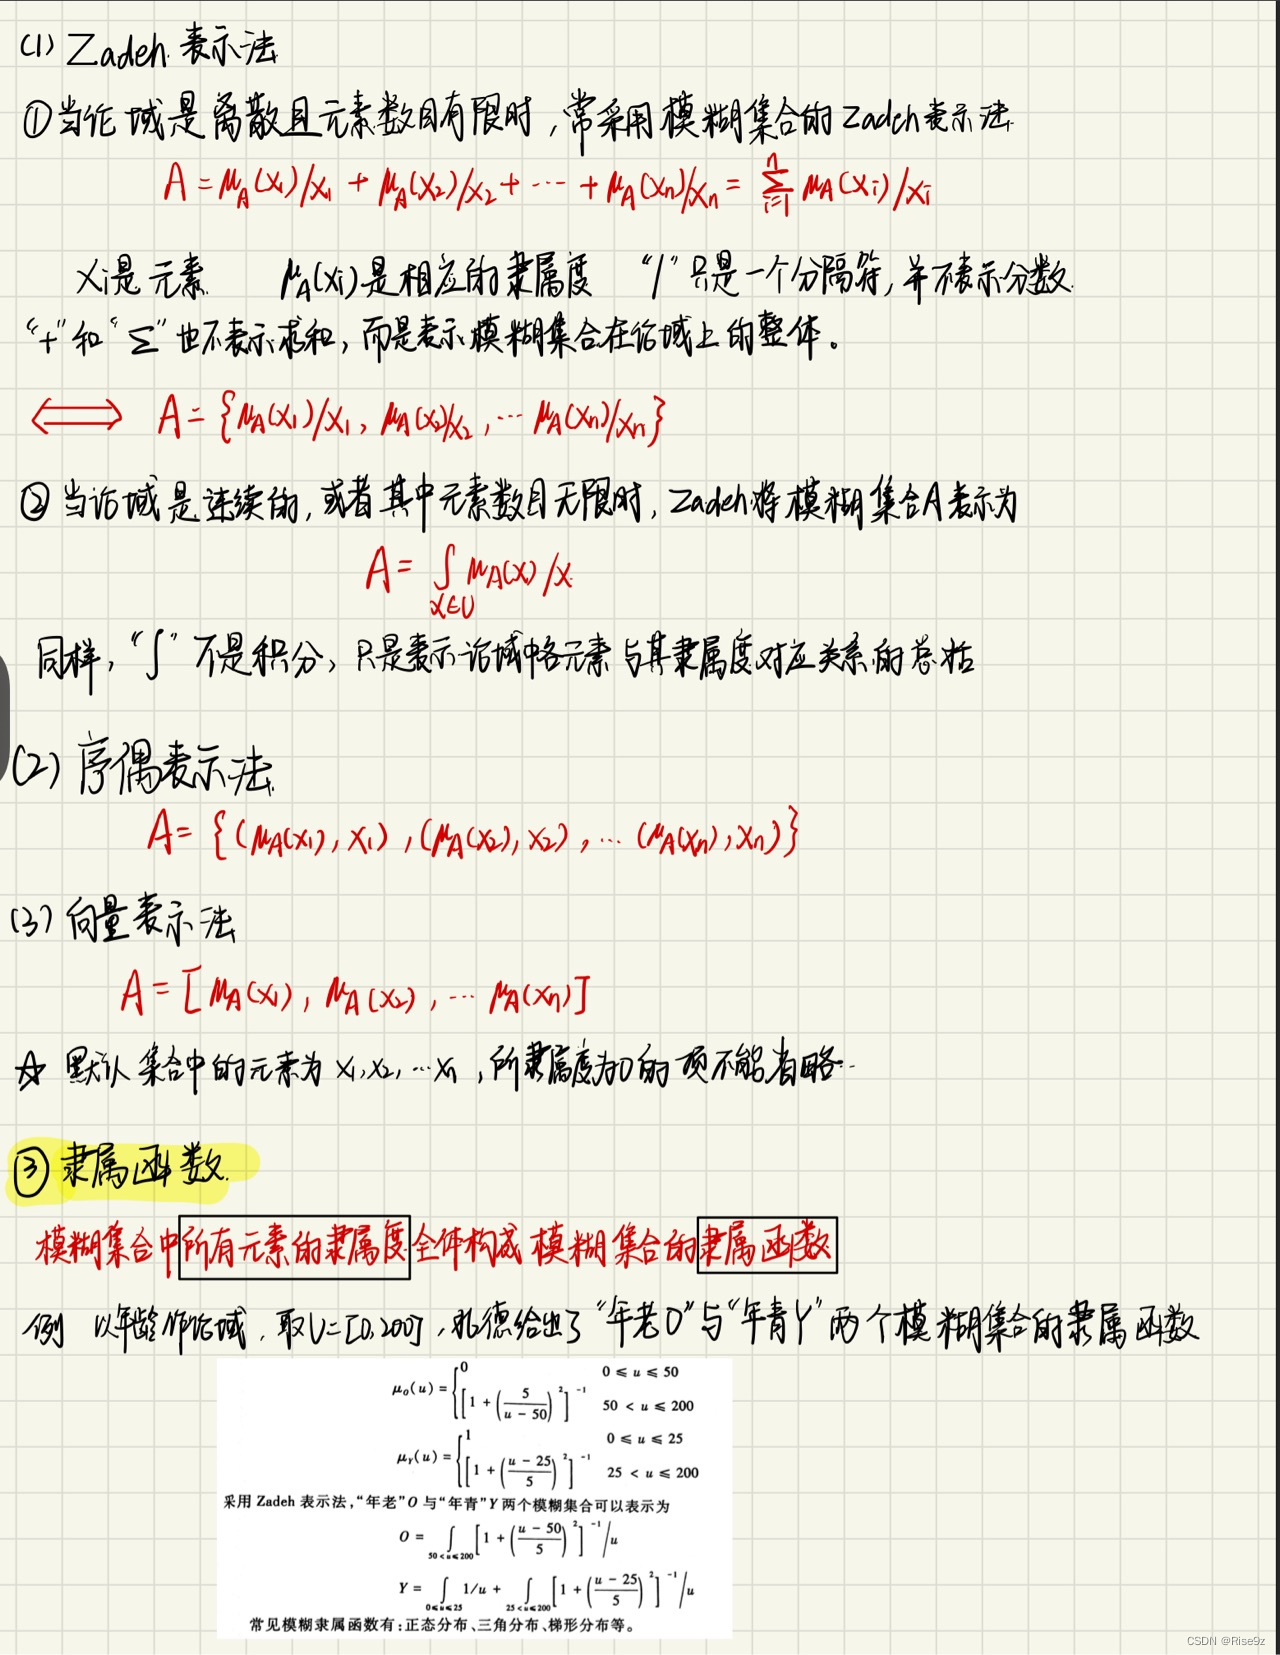 (1) Zadeh 表示法
①当论域是离散且元素数目有限时，常采用模糊集合的Zadeh表示法
A = μA(x1)/x1 + μA(x2)/x2 + ··· + μA(xn)/xn = Σ(i=1, n) μA(xi)/xi
xi是元素 μA(xi)是相应的隶属度 “/”只是一个分隔符，并不表示分数
“+”和“Σ”也不表示求和，而是表示模糊集合在论域上的整体。
⟺ A = {μA(x1)/x1, μA(x2)/x2, ··· μA(xn)/xn}
②当论域是连续的，或者其中元素数目无限时，Zadeh将模糊集合A表示为
A = ∫(x∈U) μA(x)/x
同样，“∫”不是积分，只是表示论域中各元素与其隶属度对应关系的总括
(2) 序偶表示法
A = {(μA(x1), x1), (μA(x2), x2), ··· (μA(xn), xn)}
(3) 向量表示法
A = [μA(x1), μA(x2), ··· μA(xn)]
☆ 默认集合中的元素为x1, x2, ···xn，所隶属度为0的项不能省略··
③ 隶属函数
模糊集合中所有元素的隶属度全体构成模糊集合的隶属函数
例 以年龄作论域，取U=[0,200]，扎德给出了“年老O”与“年青Y”两个模糊集合的隶属函数
μO(u) = { 0 0 ≤ u ≤ 50
[1 + (5/(u − 50))²]⁻¹ 50 < u ≤ 200
μY(u) = { 1 0 ≤ u ≤ 25
[1 + ((u − 25)/5)²]⁻¹ 25 < u ≤ 200
采用 Zadeh 表示法，“年老”O 与“年青”Y 两个模糊集合可以表示为
O = ∫(50<u≤200) [1 + ((u − 50)/5)²]⁻¹/u
Y = ∫(0≤u≤25) 1/u + ∫(25<u≤200) [1 + ((u − 25)/5)²]⁻¹/u
常见模糊隶属函数有：正态分布、三角分布、梯形分布等。
CSDN @Rise9z